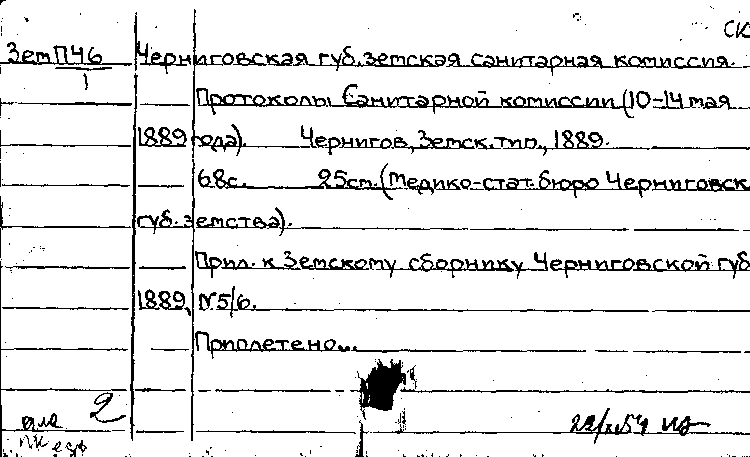 СК
ЗемПЧ6 Черниговская губ. земская санитарная комиссия.
1
Протоколы Санитарной комиссии (10-14 мая
1889 года). Чернигов, Земск. тип., 1889.
68с. 25см. (Медико-стат. бюро Черниговск
губ. земства).
Прил. к Земскому сборнику Черниговской губ
1889, №5/6.
Приплетено...
2